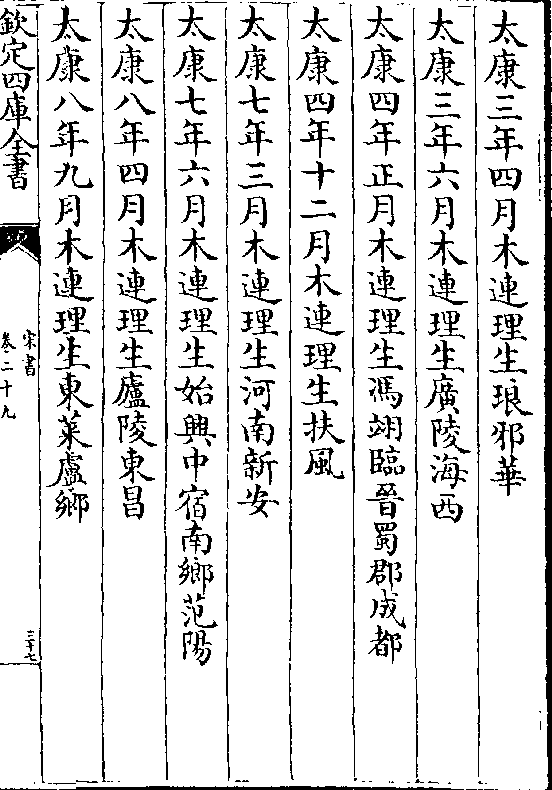 太康三年四月木連理生琅邪華
太康三年六月木連理生廣陵海西
太康四年正月木連理生馮翊臨晉蜀郡成都
太康四年十二月木連理生扶風
太康七年三月木連理生河南新安
太康七年六月木連理生始興中宿南鄉范陽
太康八年四月木連理生廬陵東昌
太康八年九月木連理生東萊盧鄉
欽定四庫全書
宋書
卷二十九
三十七